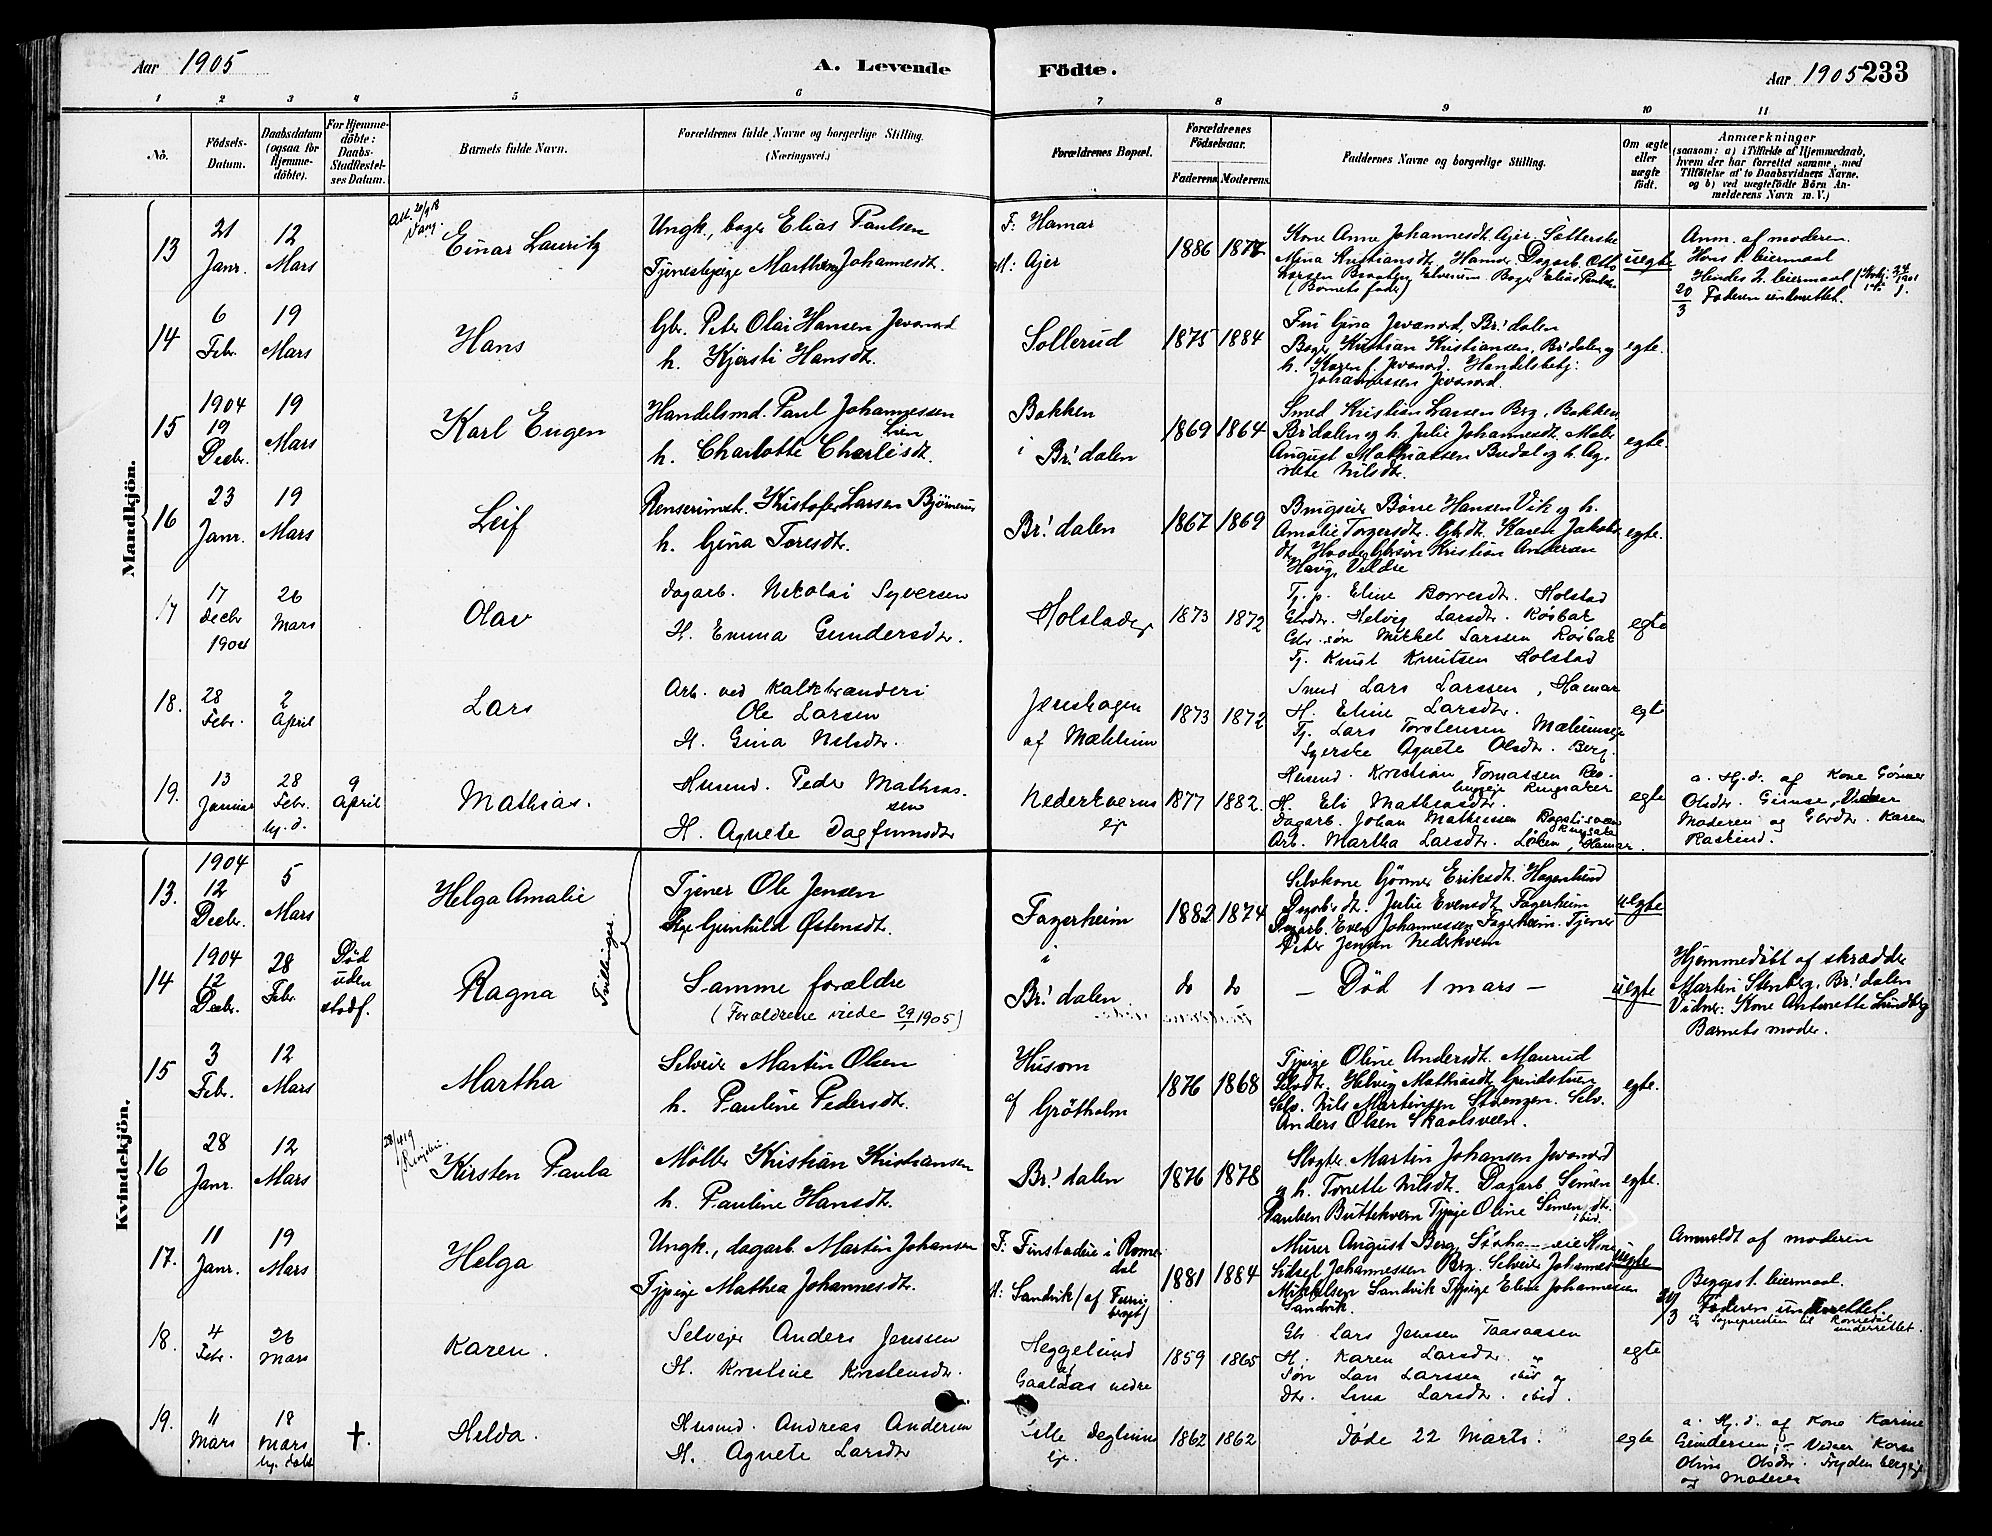 Aar 1905
A. Levende Födte.
Aar 1905 233
1 2 3 4 5 6 7 8 9 10 11
No.
Födsels-
Datum.
Daabsdatum
(ogsaa for
Hjemme-
döbte).
For Hjemme-
döbte:
Daabs-
Stadfæstel-
ses Datum.
Barnets fulde Navn.
Forældrenes fulde Navne og borgerlige Stilling.
(Næringsvei.)
Forældrenes Bopæl.
Forældrenes
Födselsaar.
Faderens Moderens
Faddernes Navne og borgerlige Stilling.
Om ægte
eller
uægte
födt.
Anmærkninger
(saasom: a) i Tilfælde af Hjemmedaab,
hvem der har forrettet samme, med
Tilföielse af to Daabsvidners Navne.
og b) ved uægtefödte Börn An-
melderens Navn m. V.)
Mandkjön.
13
21
Janr.
12
Mars
Att. 20/9 18
Vang.
Einar Lauritz
Ungk., bager Elias Paulsen
Tjenestepige Marthea Johannesdt.
F: Hamar
M: Ajer
1886 1877
Kone Anne Johannesdt. Ajer.
Mina Kristiansdt. Hamar. Dagarb. Otto
Larsen Braaten Elverum. Bager Elias Paulsen
(Barnets fader)
uegte
Anm. af moderen.
Hans 1. leiermaal
Hendes 2. leiermaal
20/3 Faderen underrettet.
14
6
Febr.
19
Mars
Hans
Gbr. Peter Olai Hansen Jevanord
h. Kjersti Hansdt.
Sollerud
1875 1884
Fru Gina Jevanord, Br.dalen
Bager Kristian Kristiansen, Br.dalen og
h. Karen f. Jevanord. Handelsbetj.
Johannessen Jevanord.
egte.
15
1904
19
Decbr.
19
Mars
Karl Eugen
Handelsmd. Paul Johannessen
Lien
h. Charlotte Charlesdt.
Bakken
i Br.dalen
1869 1864
Smed Kristian Larsen Brg, Bakken
Br.dalen og h. Julie Johannesdt. Maler
August Mathiassen Budal og h. Ag-
nete Nilsdt.
egte.
16
23
Janr.
19
Mars
Leif
Renserimst. Kristofer Larsen Bjørnerud
h. Gina Toresdt.
Br.dalen
1867 1869
Brugseier Børre Hansen Vik og h.
Amalie Torgersdt. Gbrdt. Karen Jakobs-
dt. Gbrsøn Kristian Andersen
Havig, Veldre
egte.
17
17
Decbr
1904
26
Mars
Olav
Dagarb. Nikolai Syversen
H. Emma Gundersdtr.
Holstadeje
1873 1872
Tj. p. Eline Borresdtr. Holstad
Gbrdtr. Helvig Larsdtr. Rosbak
Gbr. søn Mikkel Larsen Rosbak
Tj. Knut Knutsen Holstad
egte
18.
28
Febr.
2
April
Lars
Arb. ved Kalkbrænderi
Ole Larsen
H. Gina Nilsdtr.
Jenshagen
af Mæhlum
1873 1872
Smed Lars Larssen, Hamar
H. Eline Larsdtr.
Tj. Lars Torstensen Mælumseje
Syerske Agnete Olsdtr. Berg.
egte
19.
13
Januar
28
Febr.
hj. d.
9
April
Mathias.
Husmd. Peder Mathias-
sen
H. Agnete Dagfinnsdtr
Nederkverns
ej
1877 1882.
Husmd. Kristian Tomassen
Ringsaker
H. Eli Mathiasdtr.
Dagarb. Johan Mathiesen
Ringsaker
Arb. Martha Larsdtr. Løken, Hamar.
egte
a. Hj. d. af Kone Gønner
Olsdtr. Vidner
Moderen og Gbrdtr. Karen
Raskind.
Kvindekjön.
13.
1904
12
Decbr.
5
Mars
Helga Amalie
Tvillinger
Tjener Ole Jensen
Pige Gunhild Østensdt.
Fagerheim
i
Br.dalen
1882 1874
Selvkone Gønner Eriksdt. Hagenlund
Dagarb.dt. Julie Evensdt. Fagerheim
Dagarb. Even Johannessen Fagerheim. Tjener
Peter Jensen Nederkvern
uegte
14
1904
12
Decbr.
28
Febr.
Død
uden
stadf.
Ragna
Samme forældre
(Forældrene viede 29/1 1905)
do do
– Død 1 mars –
uegte
Hjemmedøbt af skrædder
Martin Stenberg, Br.dalen
Vidner: Kone Antonette Lundberg
Barnets moder.
15
3
Febr.
12
Mars
Martha
Selveier Martin Olsen
h. Pauline Pedersdt.
Husom
af Grøtholm
1876 1868
Tjpige Oline Andersdt. Maurud
Selvdt. Helvig Mathiasdt.
Selv. Nils Martinsen Stuengen. Selv.
Anders Olsen Skaolsveen.
egte.
16
28
Janr.
12
Mars
28/4 19
Kirsten Paula
Møller Kristian Kristiansen
h. Pauline Hansdt.
Br.dalen
1876 1878
Slagter Martin Johansen Jevanord
og h. Tonette Nilsdt. Dagarb Simen
Paulsen Buttekvern Tjpige Oline Simensdt.
ibid.
egte.
17.
11
Janr.
19
Mars
Helga
Ungk., dagarb. Martin Johansen
Tjpige Mathea Johannesdt.
F: Finstadeie i Rome-
dal
M: Sandvik (af Furu-
berget)
1881 1884
Murer August Berg,
Sidsel Johannessen Berg. Selveier Johannes
Mikkelsen Sandvik Tjpige Eline Johannessen
Sandvik.
uegte
Anmeldt af moderen
Begges 1. leiermaal.
20/3 Faderen underrettet.
Sognepresten til Romedal
underrettet.
18.
4
Febr.
26
Mars
Karen.
Selvejer Anders Jenssen
H. Kristine Kristensdtr.
Heggelund
af
Gaalaas nedre
1859 1865
Gbr Lars Jenssen Taasaasen
H. Karen Larsdtr. og
Søn Lars Larssen ibid og
Dtr. Lina Larsdtr. ibid.
egte
19.
11
Mars
18
Mars
hj. døbt
†.
Helda.
Husmd. Andreas Andersen
H. Agnete Larsdtr
Lille Deglum
ej.
1862 1862
Døde 22 Marts.
egte
a. Hj. d. af Kone Karine
Gundersen; – Vidner Kone
Oline Olsdtr.
og Moderen